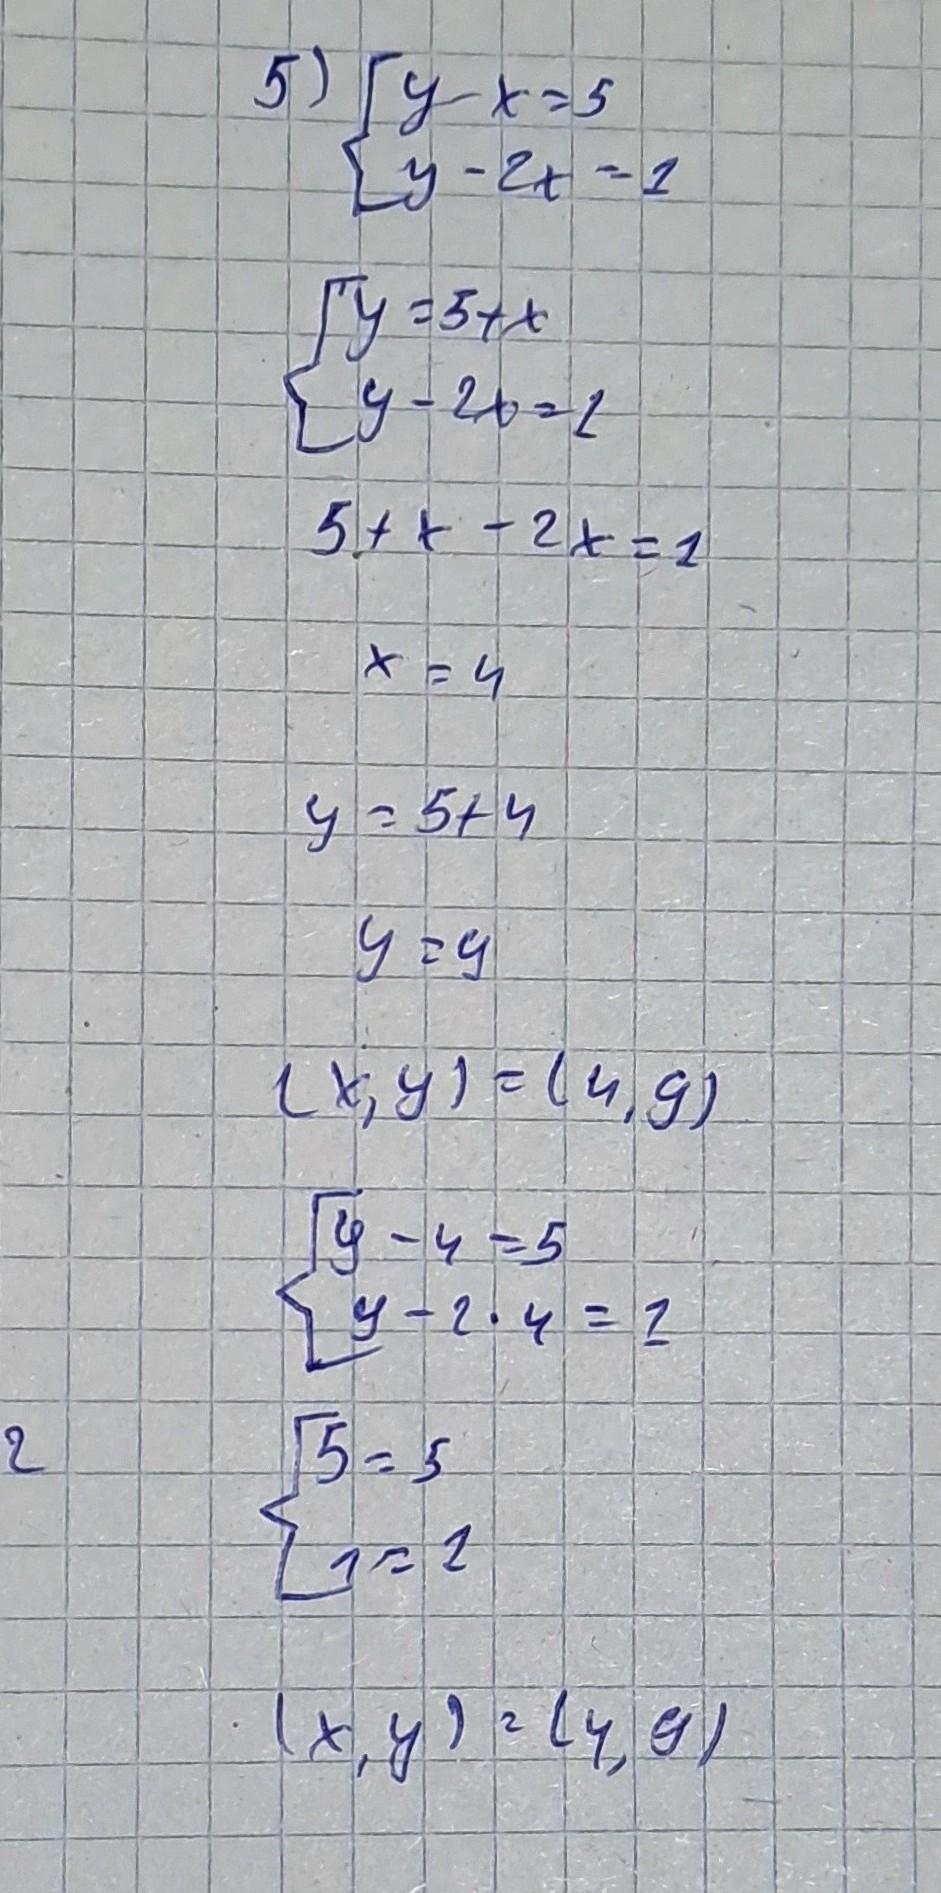 5) { y - x = 5
y - 2x = 1
{ y = 5 + x
y - 2x = 1
5 + x - 2x = 1
x = 4
y = 5 + 4
y = 9
(x, y) = (4, 9)
{ 9 - 4 = 5
9 - 2 · 4 = 1
2
{ 5 = 5
1 = 1
(x, y) = (4, 9)